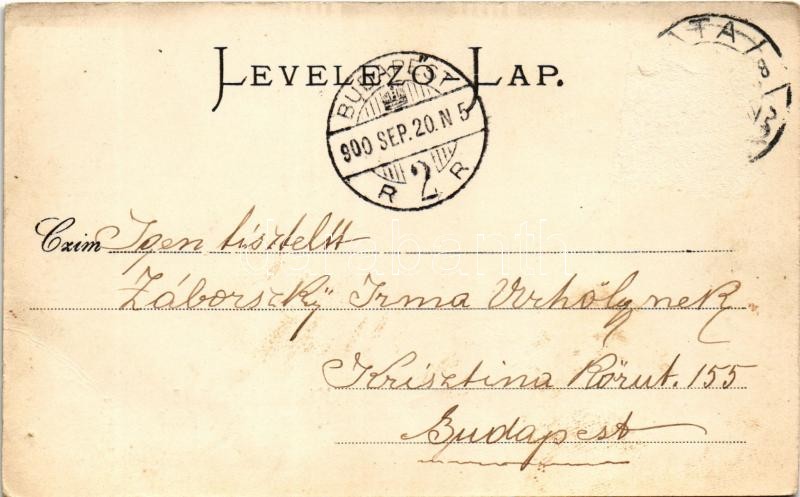 LEVELEZŐ LAP.
BUDAPEST
900 SEP. 20. N 5
R 2 R
TA
Czim Igen tisztelt
Záborszky Irma Urhölgynek
Krisztina Körut. 155
Budapest
darabanth